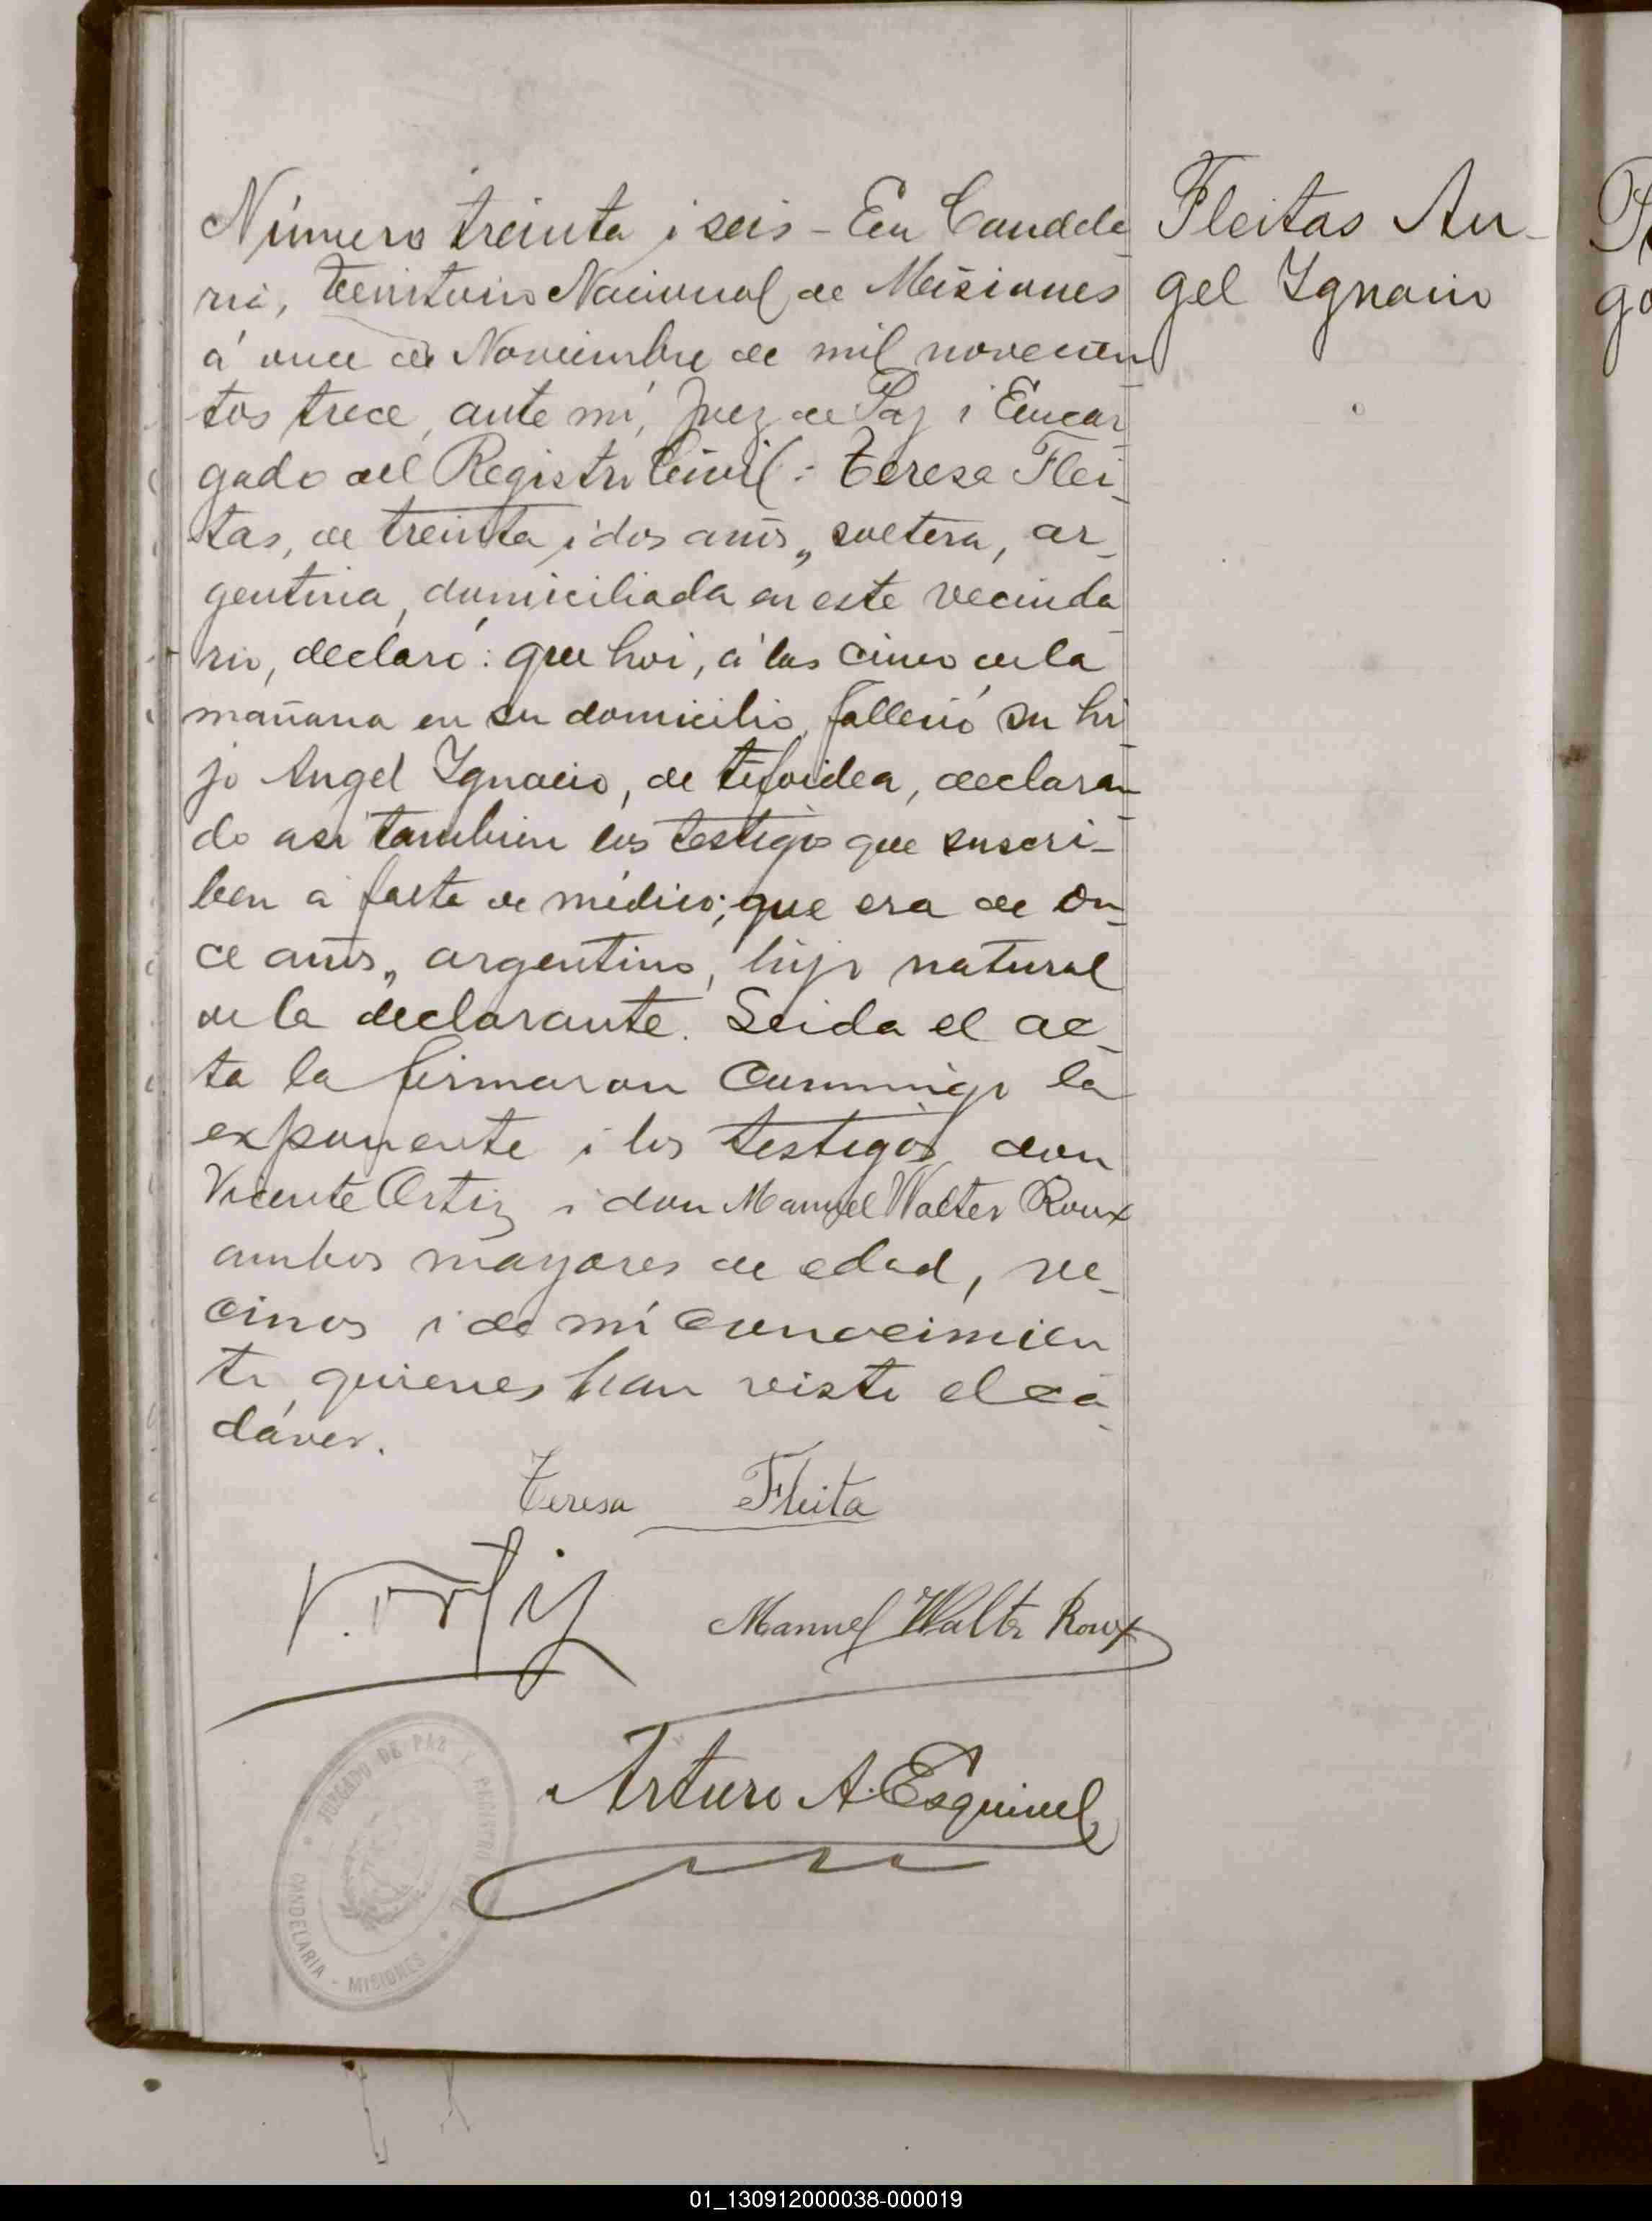 Número treinta i seis - En Candela
ria, territorio Nacional de Misiones
á once de Noviembre de mil novecien
tos trece, ante mí, Juez de Paz i Encar
gado del Registro Civil: Teresa Flei
tas, de treinta i dos años,, soltera, ar
gentina, domiciliada en este vecinda
rio, declaró: que hoi, á las cinco de la
mañana en su domicilio, falleció su hi
jo Angel Ignacio, de tifoidea, declaran
do asi tambien los testigos que suscri-
ben á falta de médico; que era de on
ce años,, argentino, hijo natural
de la declarante. Leida el ac
ta la firmaron conmigo la
exponente i los testigos don
Vicente Ortiz i don Manuel Walter Roux
ambos mayores de edad, ve
cinos i de mi conocimien
to quienes han visto el ca
dáver.
Fleitas An-
gel Ignacio
Teresa Fleita
V. Ortiz
Manuel Walter Roux
Arturo A. Esquivel
JUZGADO DE PAZ Y REGISTRO CIVIL
CANDELARIA - MISIONES
01_130912000038-000019